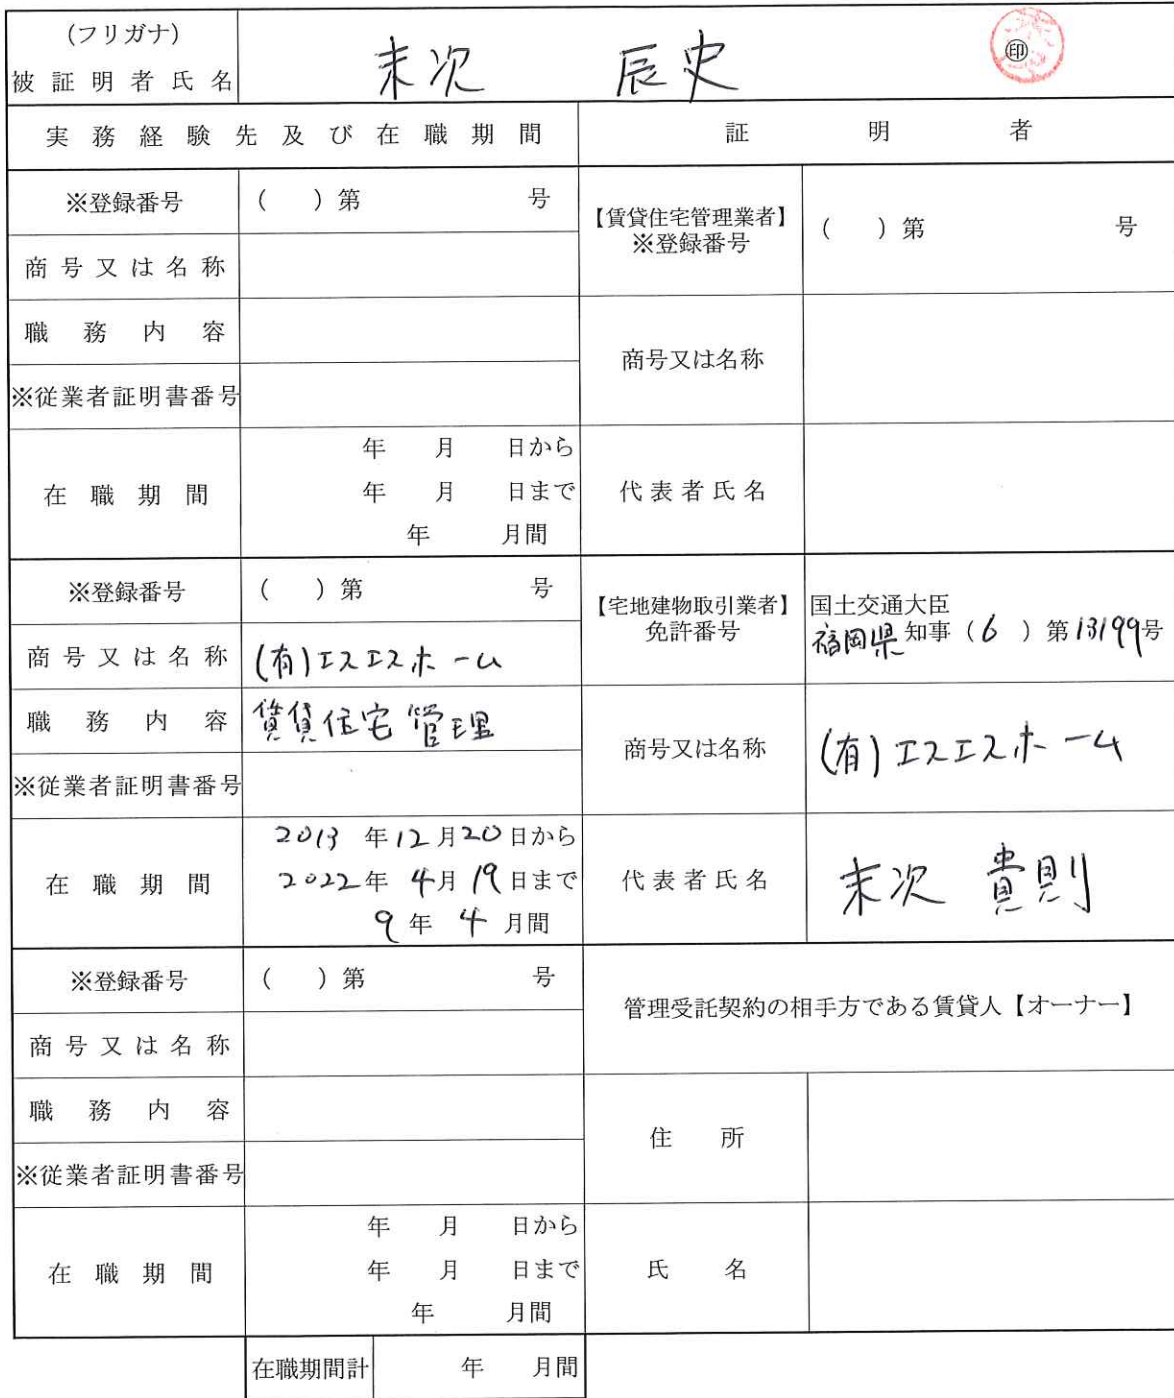 (フリガナ)
被証明者氏名
末次 辰史
㊞
実務経験先及び在職期間
証明者
※登録番号
( ) 第 号
【賃貸住宅管理業者】
※登録番号
( ) 第 号
商号又は名称
職務内容
商号又は名称
※従業者証明書番号
在職期間
年 月 日から
年 月 日まで
年 月間
代表者氏名
※登録番号
( ) 第 号
【宅地建物取引業者】
免許番号
国土交通大臣
福岡県知事 (6) 第13199号
商号又は名称
(有)エスエスホーム
職務内容
賃貸住宅管理
商号又は名称
(有)エスエスホーム
※従業者証明書番号
在職期間
2013年12月20日から
2022年4月19日まで
9年4月間
代表者氏名
末次 貴則
※登録番号
( ) 第 号
管理受託契約の相手方である賃貸人【オーナー】
商号又は名称
職務内容
住所
※従業者証明書番号
在職期間
年 月 日から
年 月 日まで
年 月間
氏名
在職期間計
年 月間